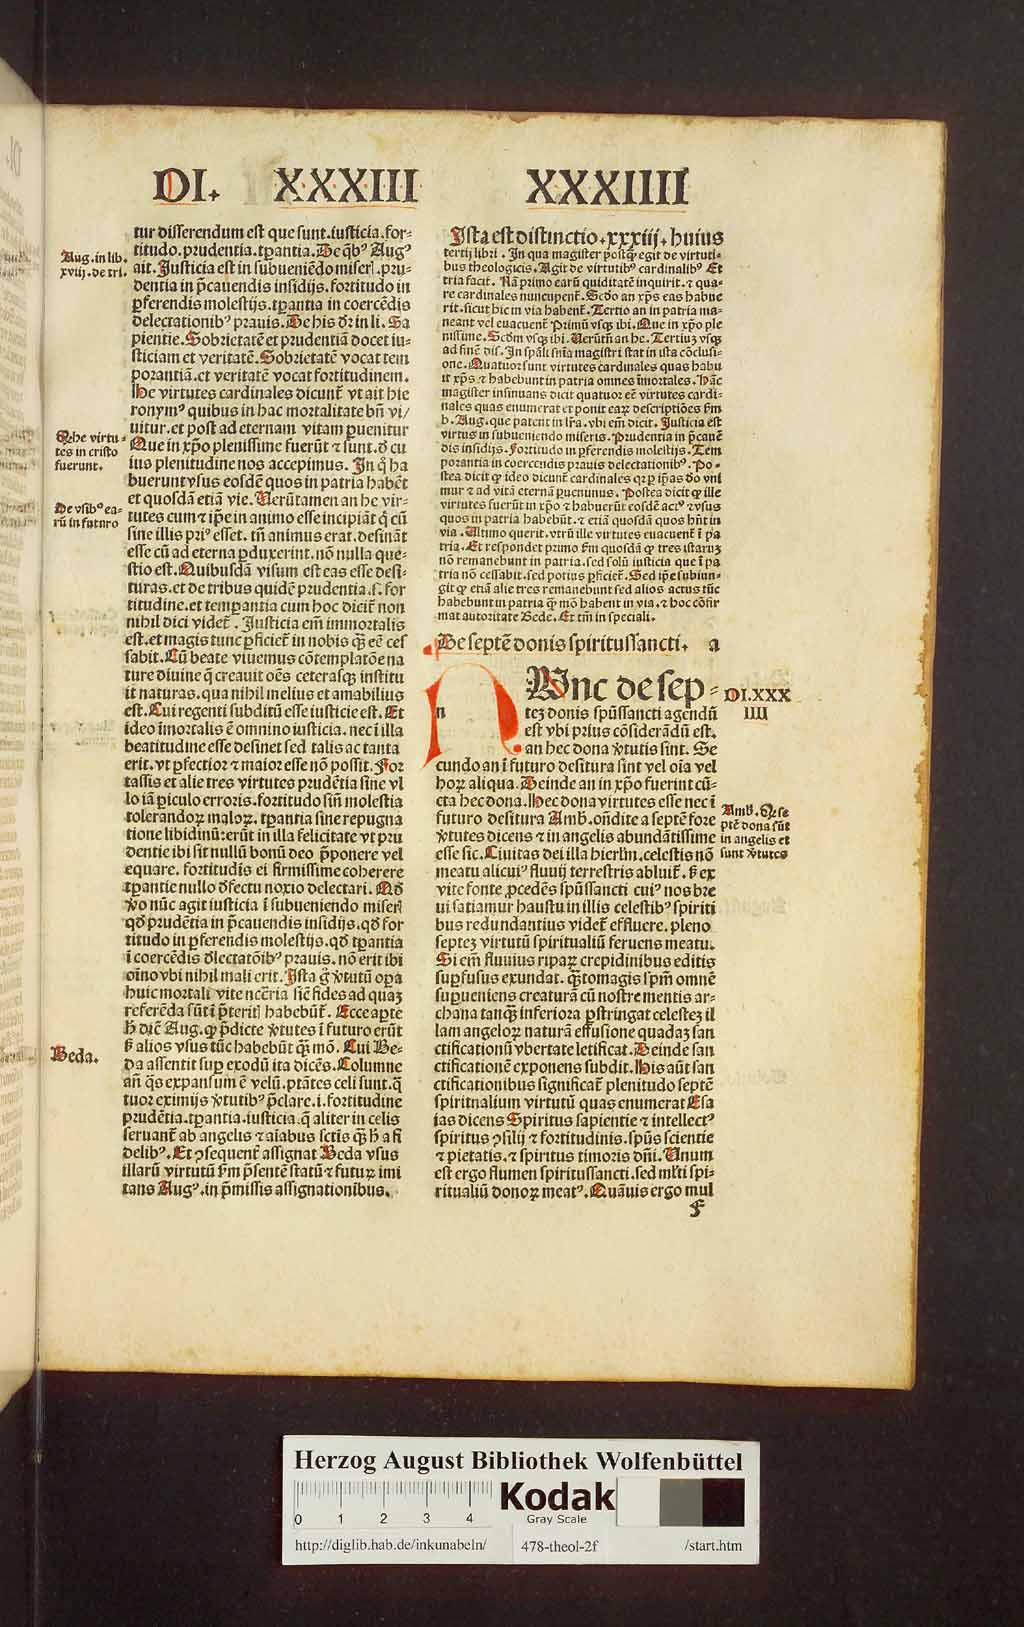 DI. XXXIII XXXIIII
tur disserendum est que sunt.iusticia.for-
titudo.prudentia.tꝑantia. De qbꝰ Augꝰ
ait. Justicia est in subueniēdo miserꝭ.pru-
dentia in p̄cauendis insidijs.fortitudo in
ꝑferendis molestijs.tꝑantia in coercēdis
delectationibꝰ prauis. De his dr̄ in li. Sa
pientie. Sobrietatē et prudentiā docet iu-
sticiam et veritatē. Sobrietatē vocat tem
porantiā.et veritatē vocat fortitudinem.
He virtutes cardinales dicunt̄ vt ait hie
ronymꝰ quibus in hac mortalitate bn̄ vi/
uitur.et post ad eternam vitam ꝑuenitur
Que in xp̄o plenissime fuerūt ⁊ sunt.d̄ cu
ius plenitudine nos accepimus. In q̊ ha
buerunt vsus eosdē quos in patria habēt
et quosdā etiā vie. Uerūtamen an he vir-
tutes cum ⁊ ip̄e in animo esse incipiāt q̄ cū
sine illis priꝰ esset. tn̄ animus erat.desināt
esse cū ad eterna ꝑduxerint.nō nulla que-
stio est. Quibusdā visum est eas esse desi-
turas.et de tribus quidē prudentia.s.for
titudine.et temꝑantia cum hoc dicit̄ non
nihil dici videt̄. Justicia em̄ immortalis
est.et magis tunc ꝑficiet̄ in nobis q̄ꝫ eē ces
sabit. Cū beate viuemus cōtemplatōe na
ture diuine q̄ creauit oēs ceterasqꝫ institu
it naturas.qua nihil melius et amabilius
est. Cui regenti subditū esse iusticie est. Et
ideo īmortalis ē omnino iusticia. nec ī illa
beatitudine esse desinet sed talis ac tanta
erit.vt ꝑfectior ⁊ maior esse nō possit. For
tassis et alie tres virtutes prudētia sine vl
lo iā ꝑiculo erroris.fortitudo sin̄ molestia
tolerandoꝝ maloꝝ. tꝑantia sine repugna
tione libidinū:erūt in illa felicitate vt pru
dentie ibi sit nullū bonū deo p̄ponere vel
equare. fortitudis ei firmissime coherere
tꝑantie nullo d̄fectu noxio delectari. Qd̄
v̊o nūc agit iusticia ī subueniendo miserꝭ
qd̄ prudētia in p̄cauendis insidijs.qd̄ for
titudo in ꝑferendis molestijs.qd̄ tꝑantia
ī coercēdis dlectatōibꝰ prauis. nō erit ibi
oīno vbi nihil mali erit. Ista g̊ v̊tutū oꝑa
huic mortali vite ncēria sic̄ fides ad quaꝫ
referēda sūt ī p̄teritꝭ habebūt̄. Ecce aꝑte
h̄ dic̄ Aug.qꝙ p̄dicte v̊tutes ī futuro erūt
ꝸ alios vsus tūc habebūt q̄ꝫ mō. Cui Be-
da assentit suꝑ exodū ita dicēs. Columne
an̄ q̄s expansum ē velū.ptātes celi sunt.q̄
tuor eximijs v̊tutibꝰ p̄clare.i.fortitudine
prudētia.tꝑantia.iusticia.q̄ aliter in celis
seruant̄ ab angelis ⁊ aīabus sctīs q̄ꝫ h̄ a fi
delibꝰ. Et ꝯsequent̄ assignat Beda vsus
illarū virtutū ẜm p̄sentē statū ⁊ futuꝝ imi
tans Augꝰ.in p̄missis assignationibus.
Aug. in lib.
xviij. de tri.
Qꝙ he virtu-
tes in cristo
fuerunt.
De vsibꝰ ea-
rū in futuro
Beda.
Ista est distinctio.xxxiij.huius
tertij libri. In qua magister postqꝫ egit de virtuti-
bus theologicis. Agit de virtutibꝰ cardinalibꝰ Et
tria facit. Nā primo earū quiditatē inquirit.⁊ qua-
re cardinales nuncupent̄. Scd̄o an xp̄s eas habue
rit.sicut hic in via habent̄. Tertio an in patria ma-
neant vel euacuent̄ Primū vsqꝫ ibi. Que in xp̄o ple
nissime. Scd̄m vsqꝫ ibi. Uerūtn̄ an he. Tertiuꝫ vsqꝫ
ad finē dis. In sp̄ali sn̄ia magistri stat in ista cōclusi-
one. Quatuor sunt virtutes cardinales quas habu
it xp̄s ⁊ habebunt in patria omnes īmortales. Hāc
magister insinuans dicit quatuor eē virtutes cardi-
nales quas enumerat et ponit eaꝝ descriptiōes ẜm
b. Aug. que patent in lr̄a. vbi em̄ dicit. Justicia est
virtus in subueniendo miseris. Prudentia in p̄cauē
dis insidijs. Fortitudo in ꝑferendis molestijs. Tem
porantia in coercendis prauis delectationibꝰ. Po-
stea dicit qꝙ ideo dicunt̄ cardinales qꝛ ꝑ ip̄as bn̄ viui
mur ⁊ ad vitā eternā ꝑueninus. Postea dicit qꝙ ille
virtutes fuerūt in xp̄o ⁊ habuerūt eosdē actꝰ ⁊ vsus
quos in patria habebūt.⁊ etiā quosdā quos hn̄t in
via. Ultimo querit.vtrū ille virtutes euacuent̄ ī pa
tria. Et respondet primo ẜm quosdā qꝙ tres istaruꝫ
nō remanebunt in patria.sed solū iusticia que ī pa
tria nō cessabit.sed potius ꝑficiet̄. Sed ip̄e subiun-
git qꝙ etiā alie tres remanebunt sed alios actus tūc
habebunt in patria q̄ꝫ mō habent in via.⁊ hoc cōfir
mat autoritate Bede. Et tm̄ in speciali.
De septē donis spiritussancti. a
n
NUnc de sep-
teꝫ donis sp̄ūssancti agendū
est vbi prius cōsiderādū est.
an hec dona v̊tutis sint. Se
cundo an ī futuro desitura sint vel oīa vel
hoꝝ aliqua. Deinde an in xp̄o fuerint cū-
cta hec dona. Hec dona virtutes esse nec ī
futuro desitura Amb̄. on̄dite a septē fore
v̊tutes dicens ⁊ in angelis abundātissime
esse sic. Ciuitas dei illa hierlm̄.celestis nō
meatu alicuiꝰ fluuij terrestris abluit̄. ꝸ ex
vite fonte ꝓcedēs sp̄ūssancti cuiꝰ nos bre
ui satiamur haustu in illis celestibꝰ spiriti
bus redundantius videt̄ effluere. pleno
septeꝫ virtutū spiritualiū feruens meatu.
Si em̄ fluuius ripaꝝ crepidinibus editis
suꝑfusus exundat. q̄ꝫtomagis sp̄m̄ omnē
suꝑueniens creaturā cū nostre mentis ar-
chana tanqꝫ inferiora ꝑstringat celesteꝫ il
lam angeloꝝ naturā effusione quadaꝫ san
ctificationū vbertate letificat. Deinde san
ctificationē exponens subdit. His aūt san
ctificationibus significat̄ plenitudo septē
spiritnalium virtutū quas enumerat Esa
ias dicens Spiritus sapientie ⁊ intellectꝰ
spiritus ꝯsilij ⁊ fortitudinis.sp̄ūs scientie
⁊ pietatis.⁊ spiritus timoris dn̄i. Unum
est ergo flumen spiritussancti.sed ml̄ti spi-
ritualiū donoꝝ meatꝰ. Quāuis ergo mul
DI.XXX
IIII
Amb̄. Qꝙ se
ptē dona sūt
in angelis et
sunt v̊tutes
F
Herzog August Bibliothek Wolfenbüttel
0 1 2 3 4
Kodak
Gray Scale
http://diglib.hab.de/inkunabeln/ 478-theol-2f /start.htm